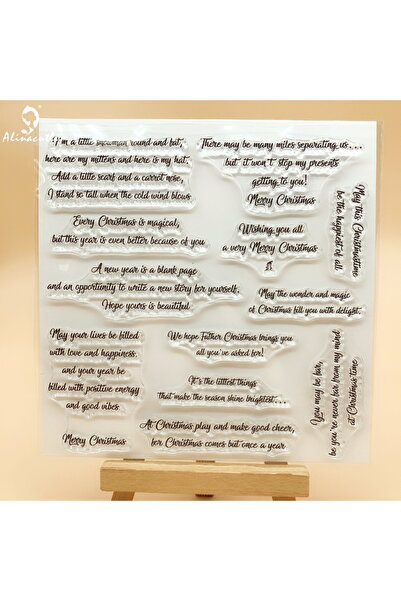 I'm a little snowman round and fat,
here are my mittens and here is my hat,
Add a little scarf and a carrot nose,
I stand so tall when the cold wind blows
There may be many miles separating us...
but it won't stop my presents
getting to you!
Merry Christmas
May this Christmastime
be the happiest of all
Every Christmas is magical,
but this year is even better because of you
Wishing you all
a very Merry Christmas
A new year is a blank page
and an opportunity to write a new story for yourself,
Hope yours is beautiful
May the wonder and magic
of Christmas fill you with delight,
May your lives be filled
with love and happiness,
and your year be
filled with positive energy
and good vibes
We hope Father Christmas brings you
all you've asked for!
It's the littlest things
that make the season shine brightest...
You may be far,
be you're never far from my mind
at Christmas time
Merry Christmas
At Christmas play and make good cheer,
for Christmas comes but once a year